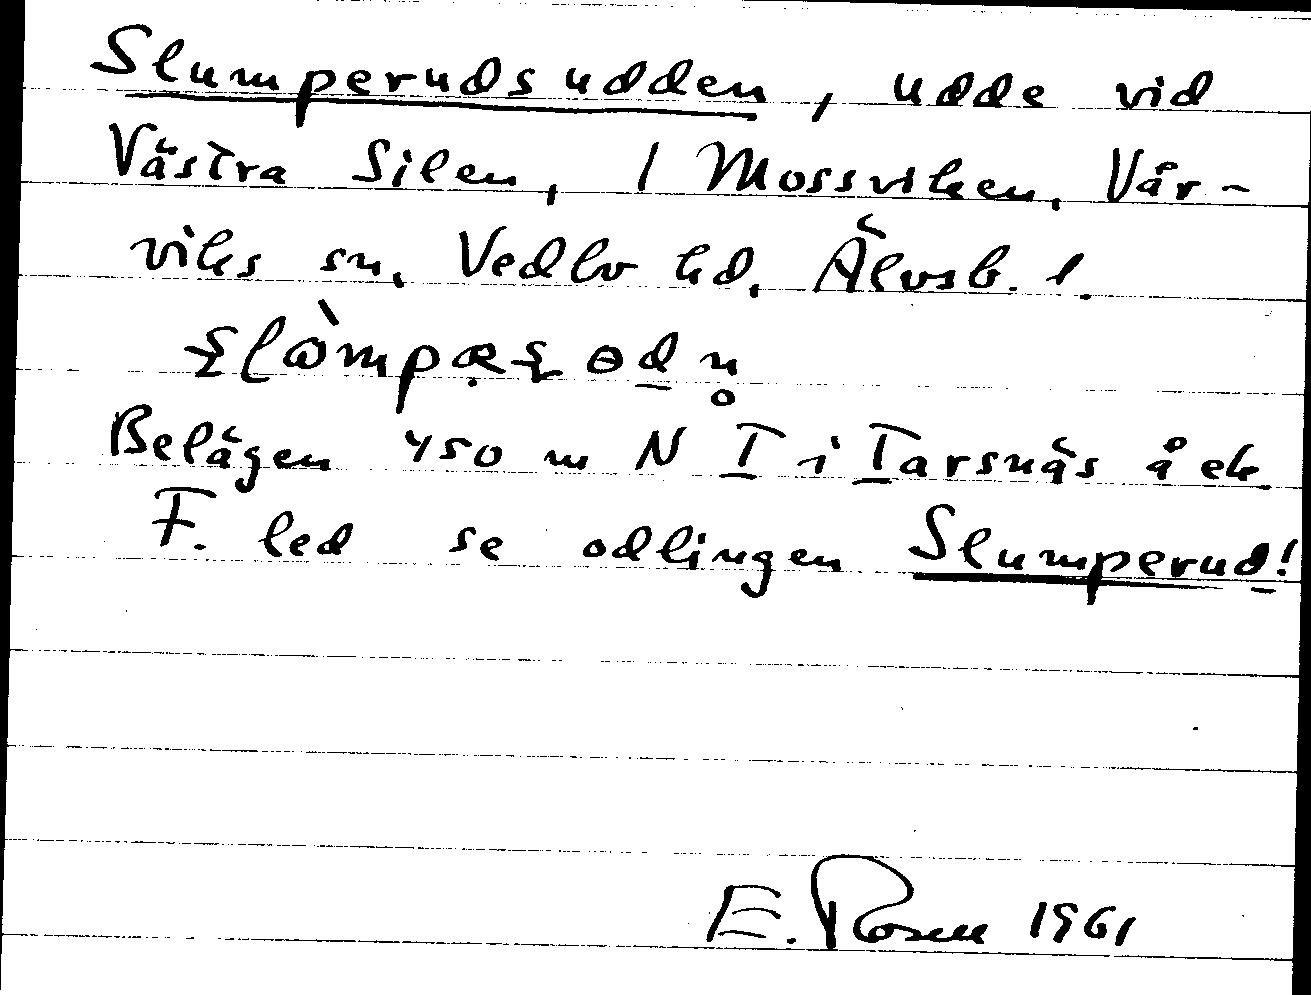 Slumperudsudden, udde vid
Västra Silen, 1 Mossviken, Vår-
viks sn, Vedbo hd, Älvsb. l.
Belägen 450 m N T i Tarsnäs å ek.
F. led se odlingen Slumperud!
E. Rosen 1961